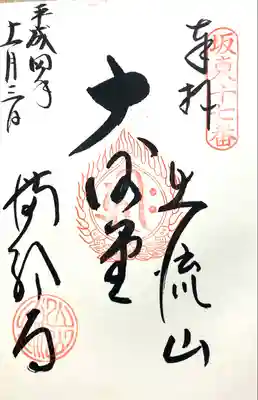 坂東十七番
奉拝
出流山
大御堂
平成四年
十一月三日
満願寺